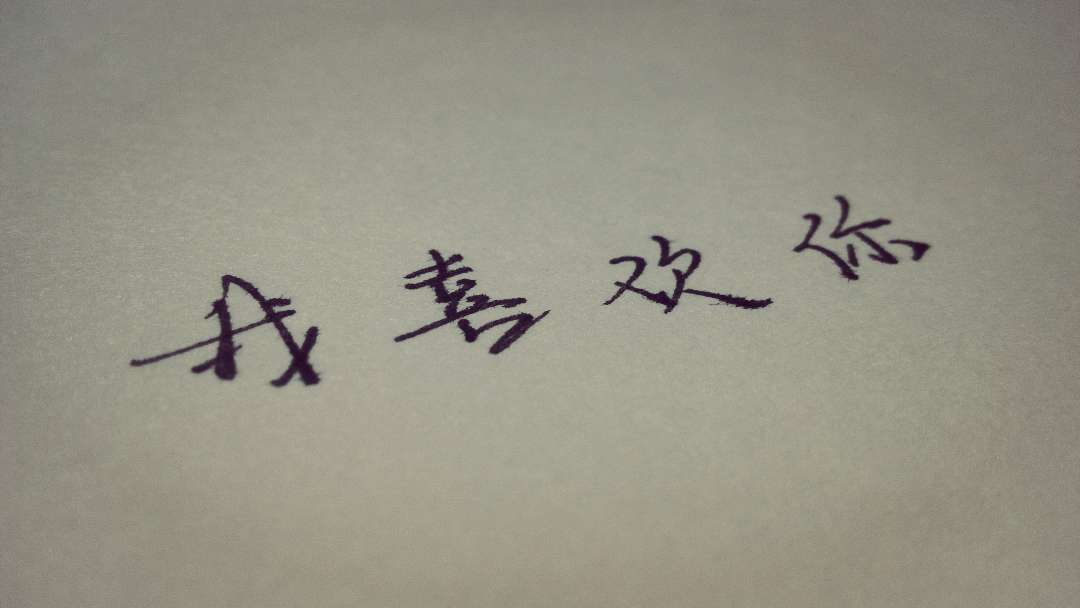 我喜欢你